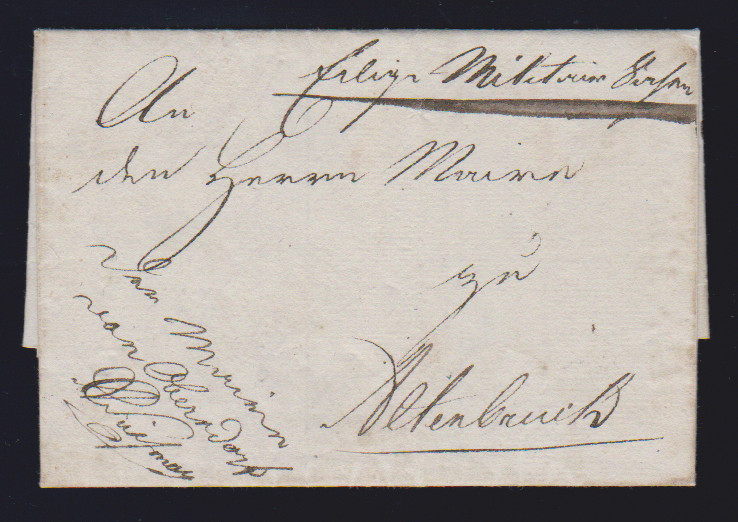 Eilige Militair Sachen
An
den Herrn Maire
zu
Altenbruch
Der Mairie
von Oberndorf